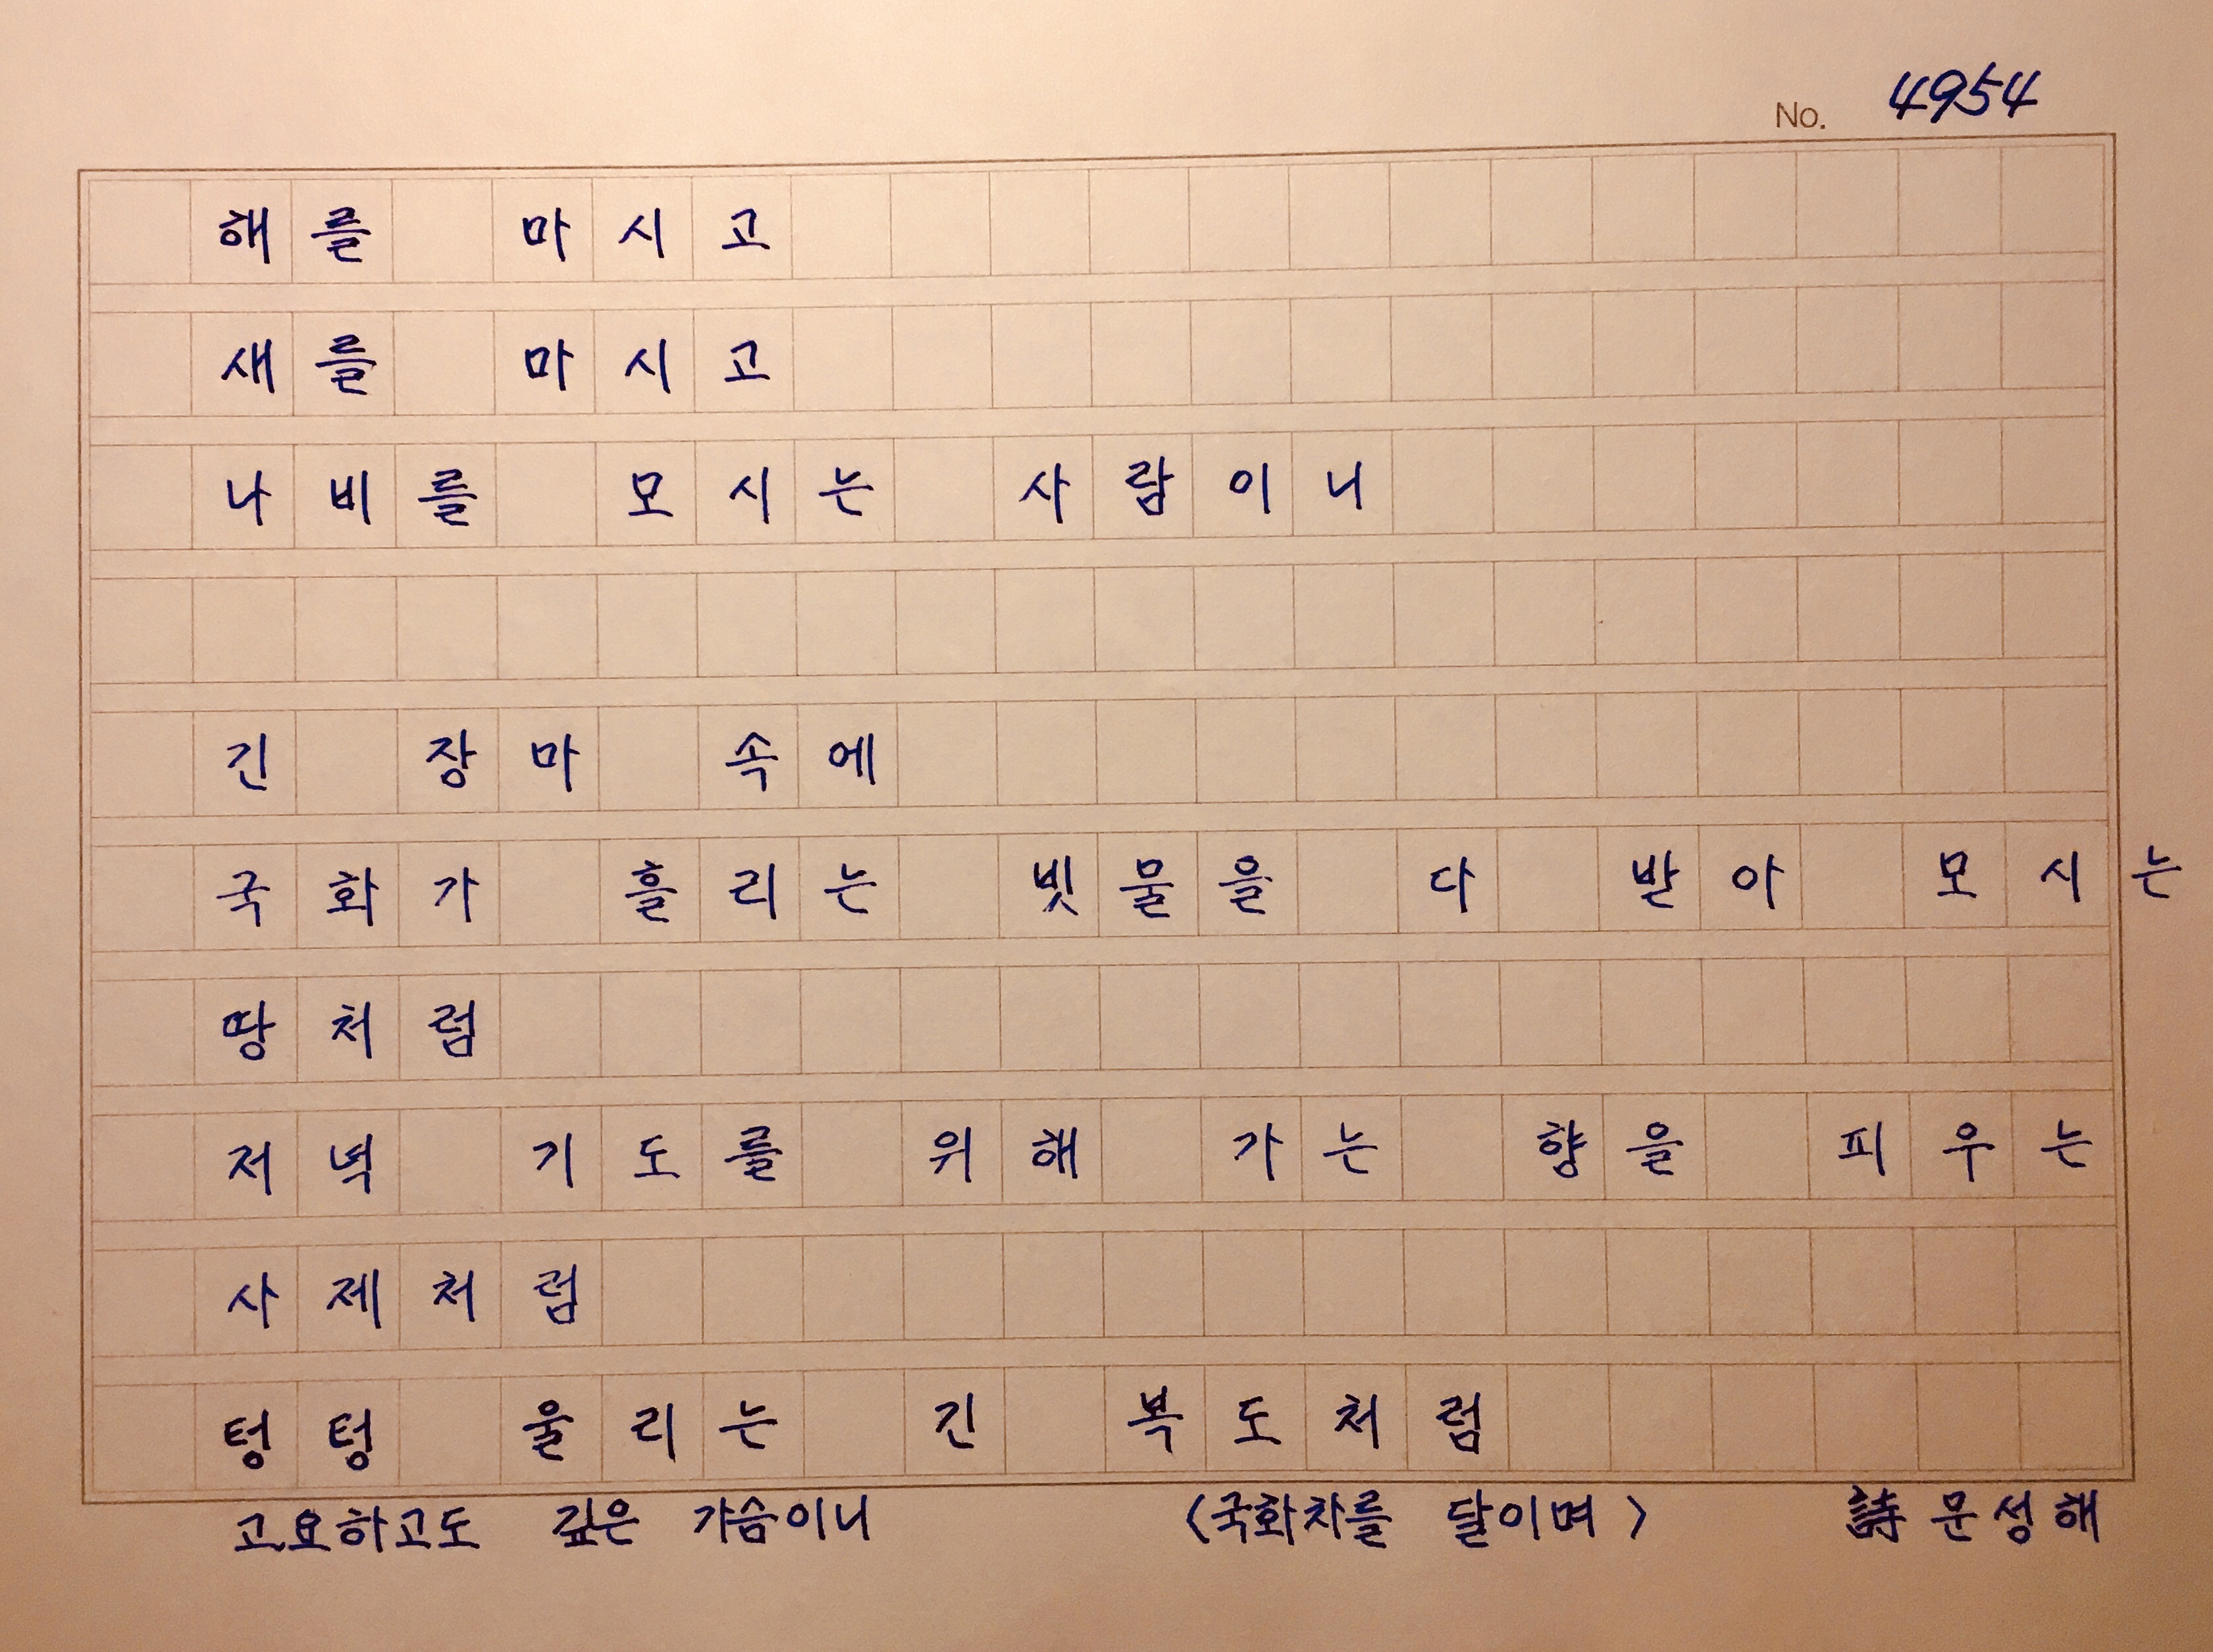 No. 4954
해를 마시고
새를 마시고
나비를 모시는 사람이니
긴 장마 속에
국화가 흘리는 빗물을 다 받아 모시는
땅처럼
저녁 기도를 위해 가는 향을 피우는
사제처럼
텅텅 울리는 긴 복도처럼
고요하고도 깊은 가슴이니 〈국화차를 달이며〉 詩 문성해